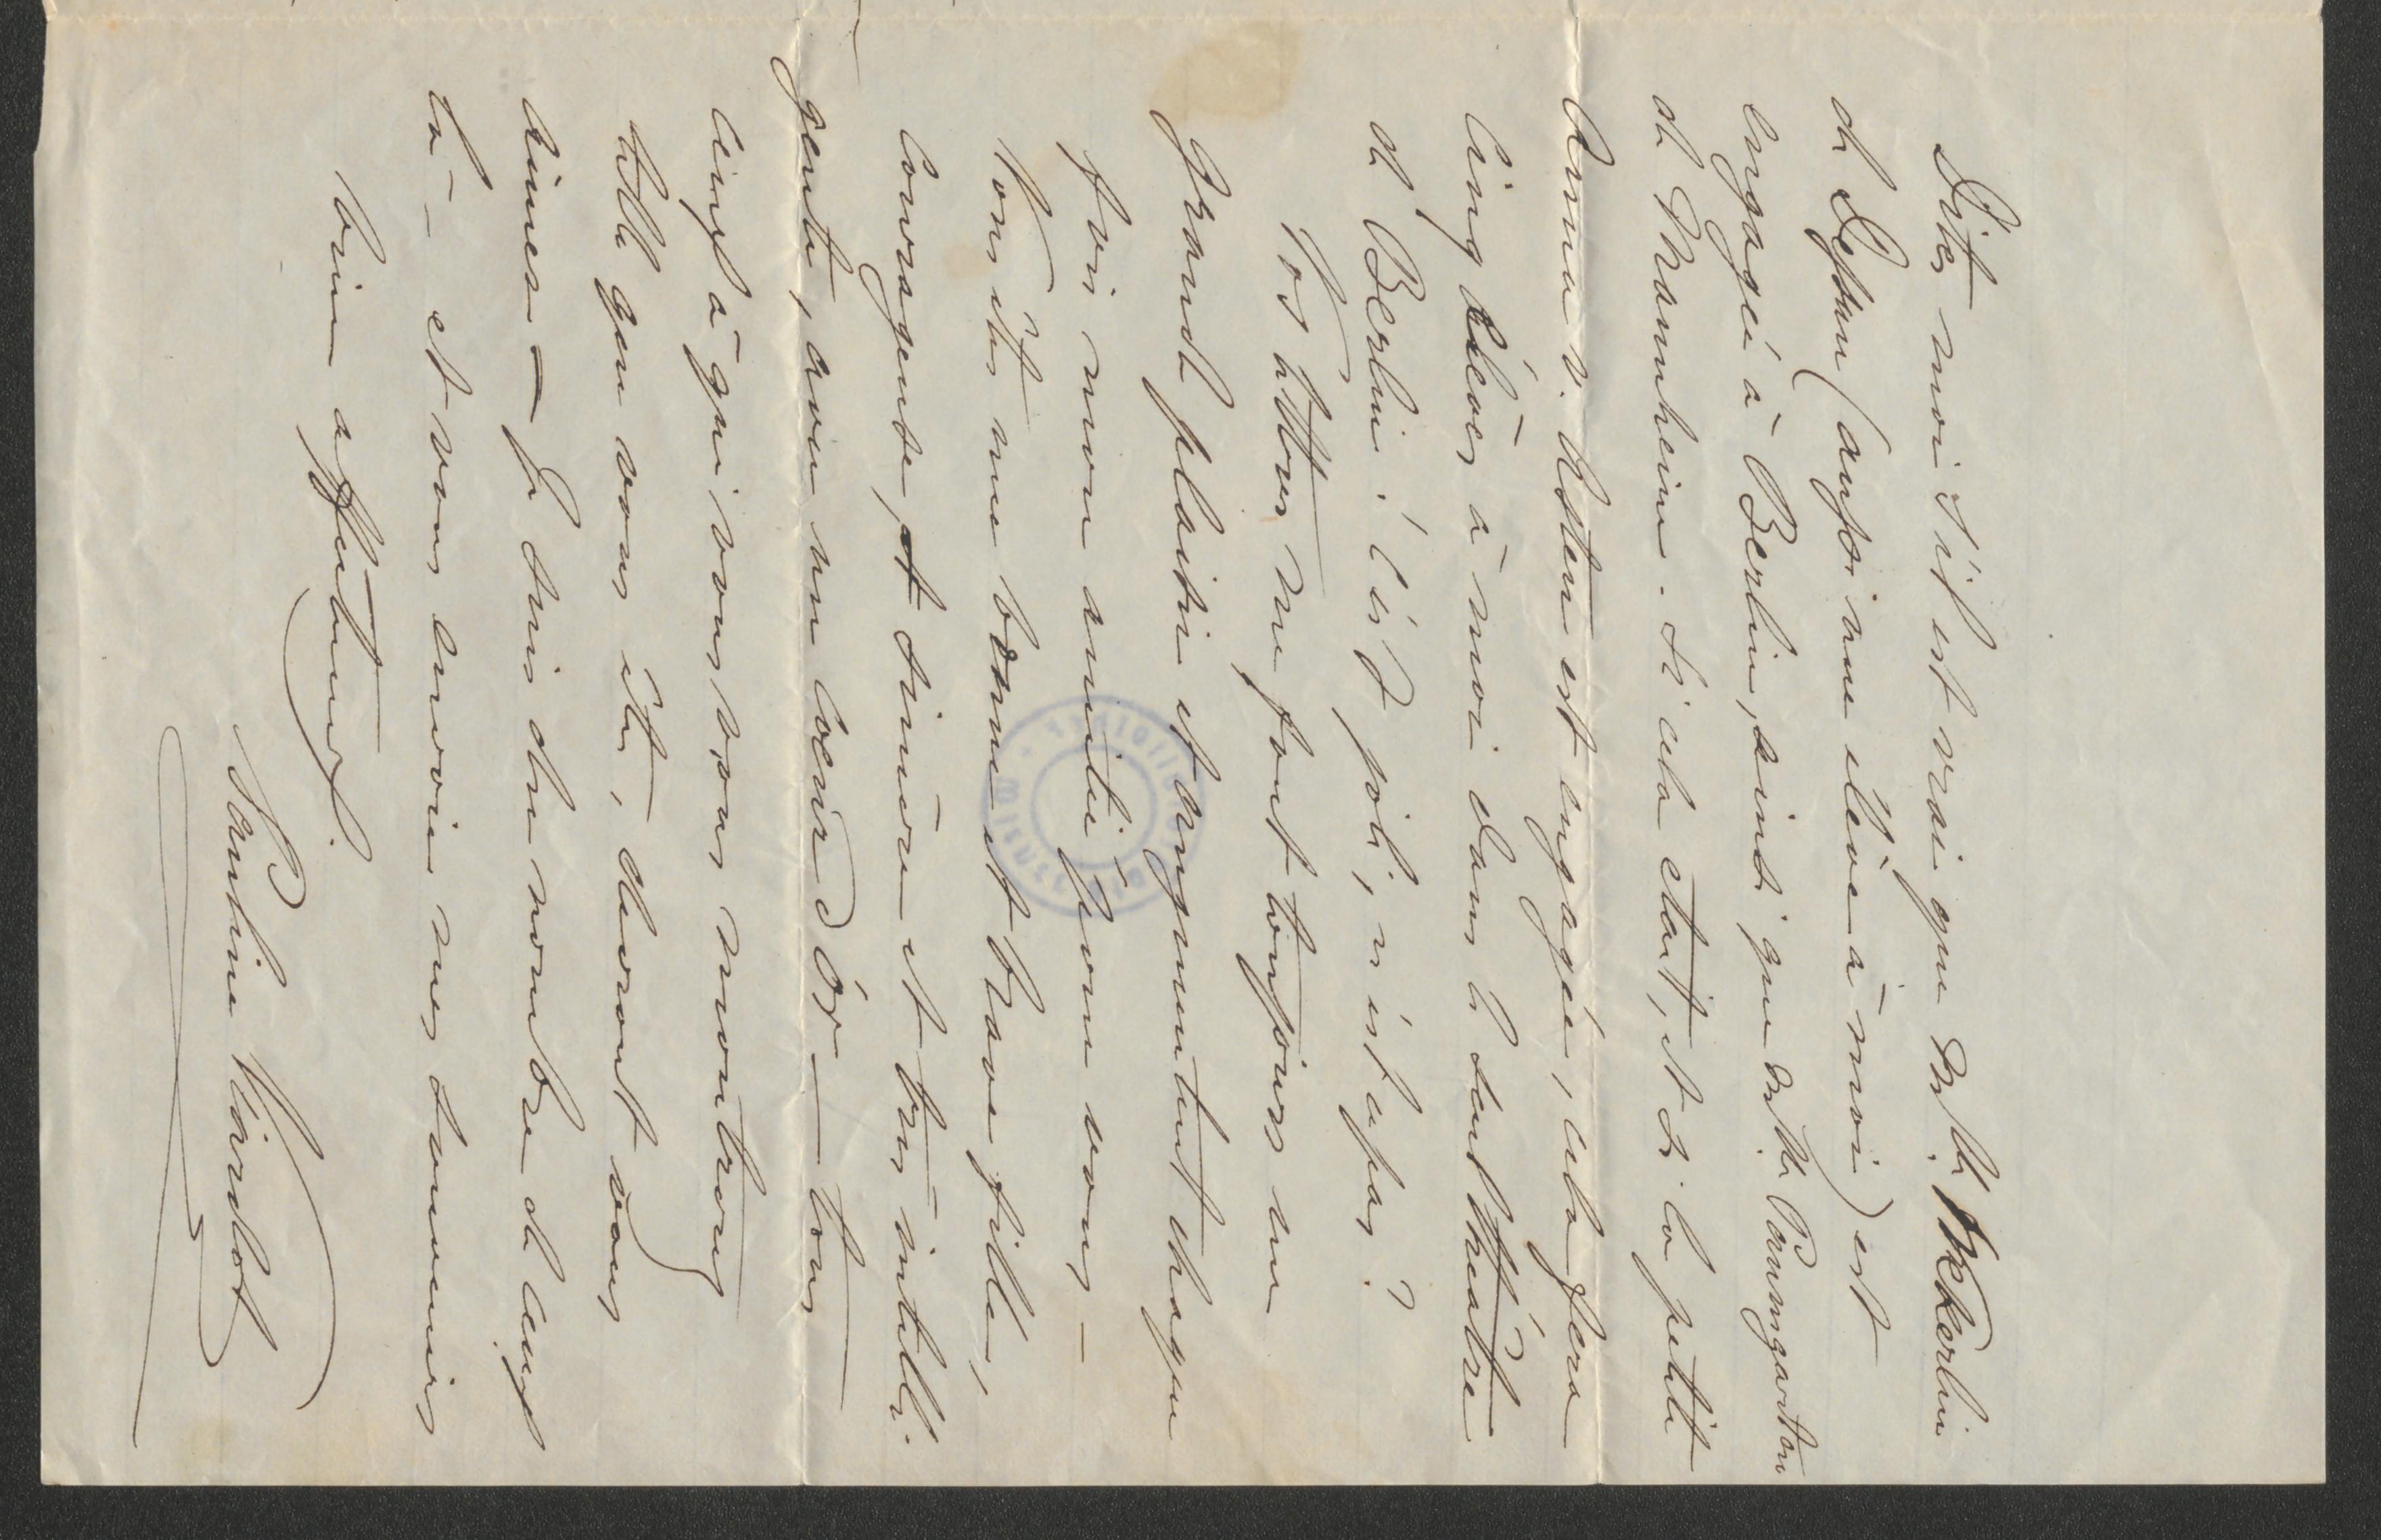 Dites moi s'il est vrai que Mlle Wekerlin
de Dessau (aussi une élève à moi) est
engagée à Berlin, ainsi que Mlle Baumgarten
de Mannheim. Si cela était, et si la petite
Anna v. Asten est engagée, cela fera
cinq élèves à moi dans le seul théatre
de Berlin! C'est joli, n'est ce pas?
Vos lettres me font toujours un
grand plaisir et augmentent chaque
fois mon amitié pour vous –
Vous êtes une bonne et brave fille,
courageuse, et sincère et très intelli-
gente, avec un coeur d'or – tous
ceux à qui vous vous montrerez
telle que vous êtes, devront vous
aimer – Je suis du nombre de ceux
là – et vous envoie mes souvenirs
bien affectueux.
Pauline Viardot